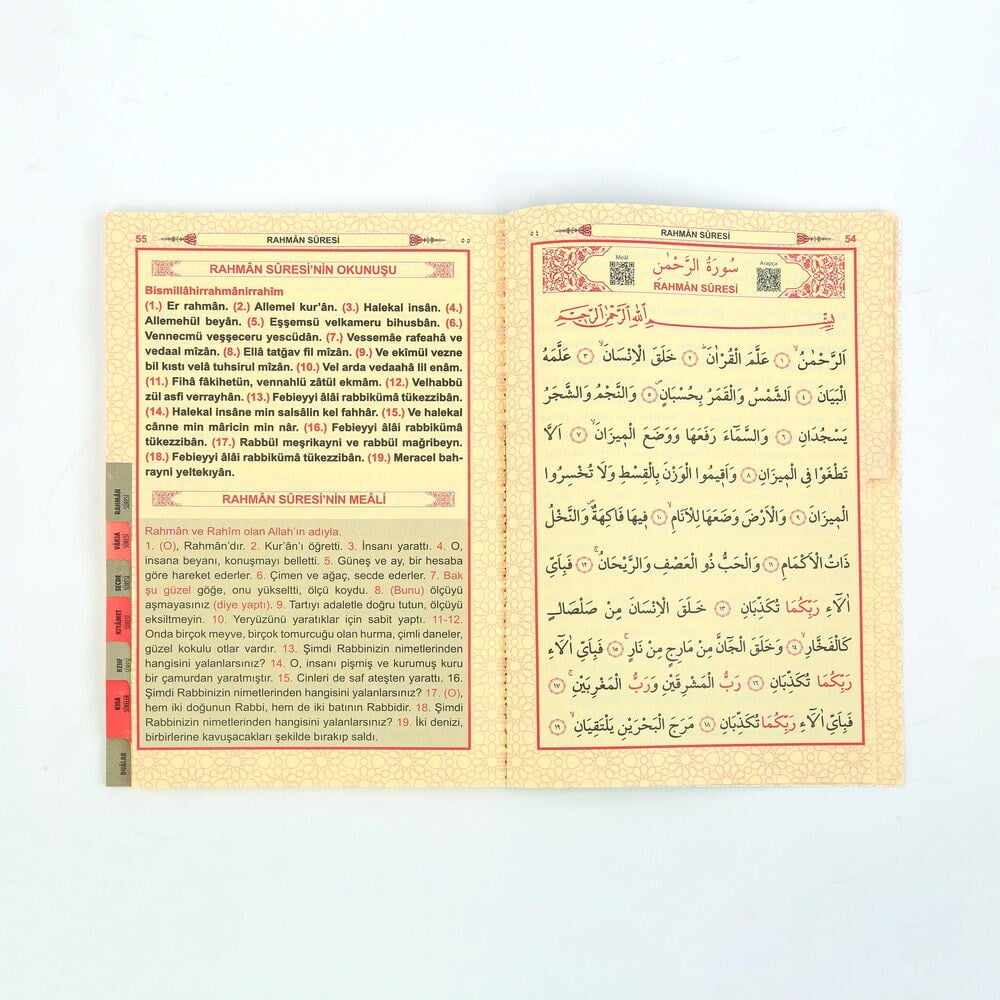 55 RAHMÂN SÛRESİ ٥٥
RAHMÂN SÛRESİ'NİN OKUNUŞU
Bismillâhirrahmânirrahîm
(1.) Er rahmân. (2.) Allemel kur'ân. (3.) Halekal insân. (4.)
Allemehül beyân. (5.) Eşşemsü velkameru bihusbân. (6.)
Vennecmü veşşeceru yescüdân. (7.) Vessemâe rafeahâ ve
vedaal mîzân. (8.) Ellâ tatğav fil mîzân. (9.) Ve ekîmül vezne
bil kıstı velâ tuhsirul mîzân. (10.) Vel arda vedaahâ lil enâm.
(11.) Fihâ fâkihetün, vennahlü zâtül ekmâm. (12.) Velhabbü
zül asfi verrayhân. (13.) Febieyyi âlâi rabbikümâ tükezzibân.
(14.) Halekal insâne min salsâlin kel fahhâr. (15.) Ve halekal
cânne min mâricin min nâr. (16.) Febieyyi âlâi rabbikümâ
tükezzibân. (17.) Rabbül meşrikayni ve rabbül mağribeyn.
(18.) Febieyyi âlâi rabbikümâ tükezzibân. (19.) Meracel bah-
rayni yeltekıyân.
RAHMÂN SÛRESİ'NİN MEÂLİ
Rahmân ve Rahîm olan Allah'ın adıyla.
1. (O), Rahmân'dır. 2. Kur'ân'ı öğretti. 3. İnsanı yarattı. 4. O,
insana beyanı, konuşmayı belletti. 5. Güneş ve ay, bir hesaba
göre hareket ederler. 6. Çimen ve ağaç, secde ederler. 7. Bak
şu güzel göğe, onu yükseltti, ölçü koydu. 8. (Bunu) ölçüyü
aşmayasınız (diye yaptı). 9. Tartıyı adaletle doğru tutun, ölçüyü
eksiltmeyin. 10. Yeryüzünü yaratıklar için sabit yaptı. 11-12.
Onda birçok meyve, birçok tomurcuğu olan hurma, çimli daneler,
güzel kokulu otlar vardır. 13. Şimdi Rabbinizin nimetlerinden
hangisini yalanlarsınız? 14. O, insanı pişmiş ve kurumuş kuru
bir çamurdan yaratmıştır. 15. Cinleri de saf ateşten yarattı. 16.
Şimdi Rabbinizin nimetlerinden hangisini yalanlarsınız? 17. (O),
hem iki doğunun Rabbi, hem de iki batının Rabbidir. 18. Şimdi
Rabbinizin nimetlerinden hangisini yalanlarsınız? 19. İki denizi,
birbirlerine kavuşacakları şekilde bırakıp saldı.
RAHMÂN SÛRESİ
VÂKIA SÛRESİ
SECDE SÛRESİ
KIYÂMET SÛRESİ
KEHF SÛRESİ
KISA SÛRELER
DUÂLAR
٥٤ RAHMÂN SÛRESİ 54
Meâl
سُورَةُ الرَّحْمٰنِ
Arapça
RAHMÂN SÛRESİ
بِسْمِ اللّٰهِ الرَّحْمٰنِ الرَّحِيمِ
اَلرَّحْمٰنُۙ ١ عَلَّمَ الْقُرْاٰنَۜ ٢ خَلَقَ الْاِنْسَانَۙ ٣ عَلَّمَهُ
الْبَيَانَ ٤ اَلشَّمْسُ وَالْقَمَرُ بِحُسْبَانٍۖ ٥ وَالنَّجْمُ وَالشَّجَرُ
يَسْجُدَانِ ٦ وَالسَّمَٓاءَ رَفَعَهَا وَوَضَعَ الْمٖيزَانَۙ ٧ اَلَّا
تَطْغَوْا فِي الْمٖيزَانِ ٨ وَاَقٖيمُوا الْوَزْنَ بِالْقِسْطِ وَلَا تُخْسِرُوا
الْمٖيزَانَ ٩ وَالْاَرْضَ وَضَعَهَا لِلْاَنَامِۙ ١٠ فٖيهَا فَاكِهَةٌۖ وَالنَّخْلُ
ذَاتُ الْاَكْمَامِۖ ١١ وَالْحَبُّ ذُو الْعَصْفِ وَالرَّيْحَانُۚ ١٢ فَبِاَيِّ
اٰلَٓاءِ رَبِّكُمَا تُكَذِّبَانِ ١٣ خَلَقَ الْاِنْسَانَ مِنْ صَلْصَالٍ
كَالْفَخَّارِۙ ١٤ وَخَلَقَ الْجَٓانَّ مِنْ مَارِجٍ مِنْ نَارٍۚ ١٥ فَبِاَيِّ اٰلَٓاءِ
رَبِّكُمَا تُكَذِّبَانِ ١٦ رَبُّ الْمَشْرِقَيْنِ وَرَبُّ الْمَغْرِبَيْنِۚ ١٧
فَبِاَيِّ اٰلَٓاءِ رَبِّكُمَا تُكَذِّبَانِ ١٨ مَرَجَ الْبَحْرَيْنِ يَلْتَقِيَانِۙ ١٩